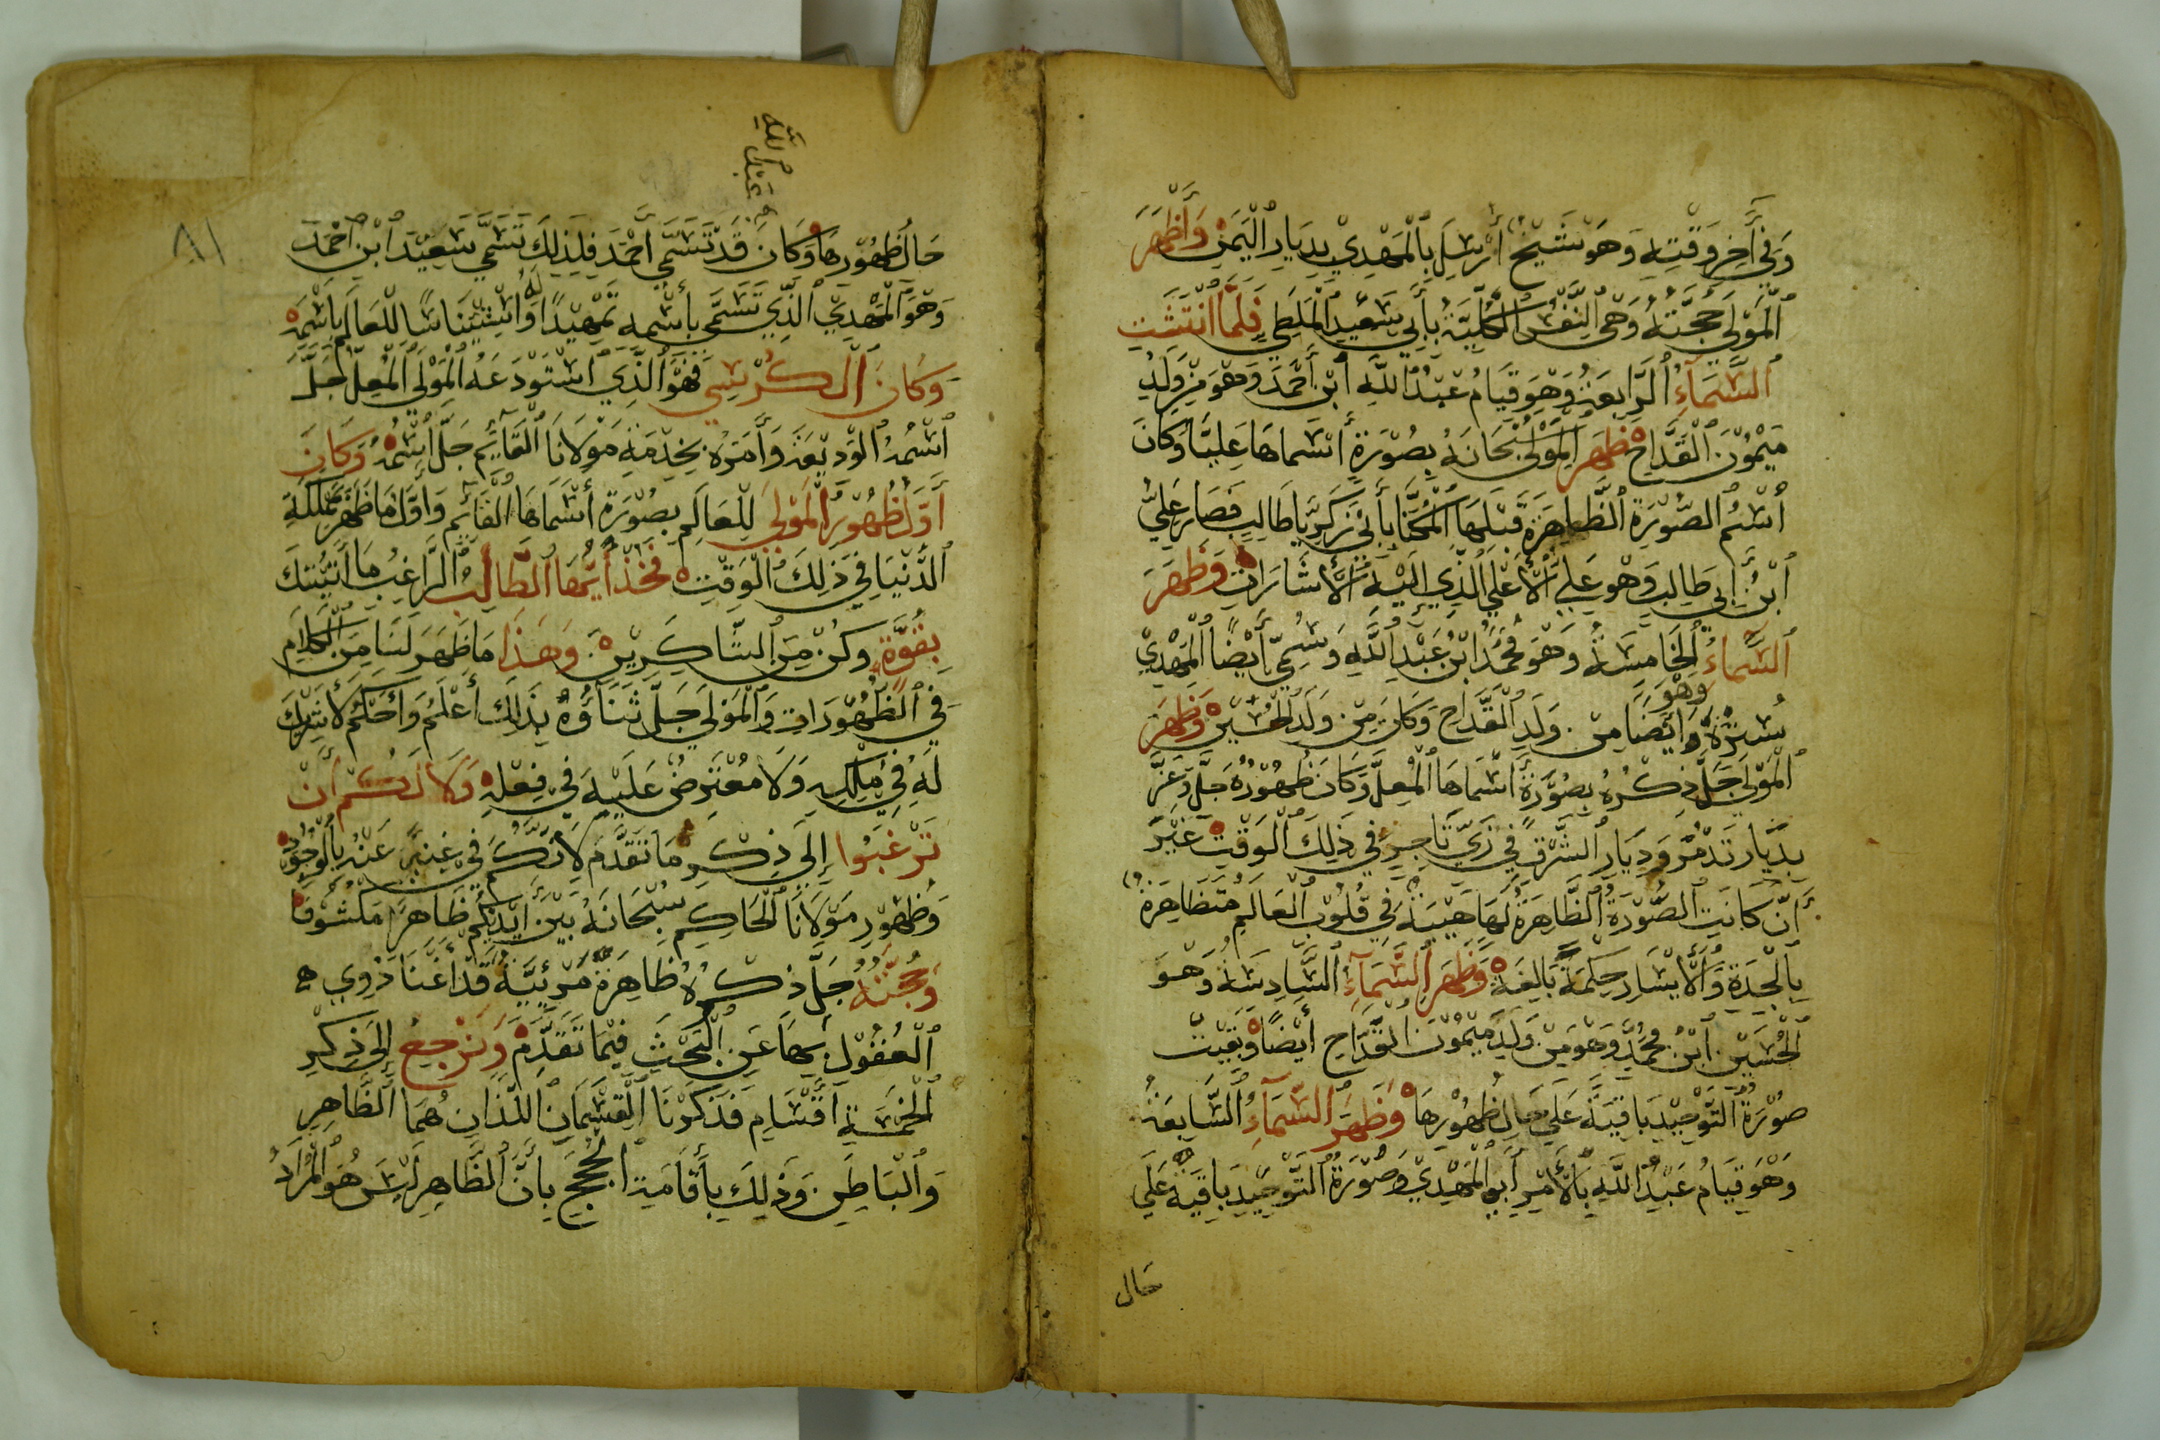 وَفِي آخِرِ وَقْتِهِ وَهَوَ شَيْخٌ أُرْسِلَ بِالْمَهْدِيِ بِدِيَارِ الْيَمَنِ وَأَظْهَرَ
الْمَوْلَى حُجَّتَهُ وَهِيَ النَّفْسُ الْكُلِّيَّةُ بِأَبِي سَعِيدِ الْمَلَطِي فَلَمَّا انْتَشَتِ
السَّمَآءُ الرَّابِعَةُ وَهِوَ قِيَامُ عَبْدُ اللَّهِ ابْنِ أَحْمَدَ وَهْوَ مِنْ وِلْدِ
مَيْمُوْنَ الْقَدَّاحِ ظَهَرَ الْمَوْلَى سُبْحَانَهُ بِصُوْرَةٍ اَسْمَاهَا عَلِيَّا وَكَانَ
اُسْمُ الصُّوْرَةِ الظَّاهِرَةِ قَبْلَهَا الْمُكَنَّا بِأَبِي زَكَرِيَّا طَالِبٍ فَصَارَ عَلِيُّ
ابْنُ أَبِي طَالِبٍ وَهْوَ عَلِي الْأَعْلَى الَّذِي إِلَيْهِ الْأَشَارَاتِ وَظَهَرَ
السَّمَاءُ الْخَامِسَةُ وَهْوَ مُحَمَّدُ ابْنُ عَبْدِ اللَّهِ وَسُمِّيَ أَيْضًا الْمَهْدِيْ
سُتْرَةً وَهْوَ أَيْضًا مِنْ وَلَدِ الْقَدَّاحِ وَكَانَ مِنْ وَلَدِ الْحُسَيْنِ وَظَهَرَ
الْمَوْلَى جَلَّ ذِكْرُهُ بِصُوْرَةٍ اَسْمَاهَا الْمُعِلَّ وَكَانَ ظُهُوْرُهُ جَلَّ وَعَزَّ
بِدِيَارِ تَدْمُرَ وَدِيَارِ الشَّرْقِ فِي زِيِّ تَاجِرٍ فِي ذَلِكَ الْوَقْتِ غَيْرَ
أَنْ كَانَتِ الصُّوْرَةُ الظَّاهِرَةُ لَهَا هَيْبَةٌ فِي قُلُوْبِ الْعَالَمِ مُتَظَاهِرَةٌ
بِالْجِدَةِ وَالْأَيْسَارِ حِكْمَةً بَالِغَةً وَظَهَرَ السَّمَآءُ السَّادِسَةُ وَهْوَ
الْحُسَيْنِ ابْنُ مُحَمَّدٍ وَهْوَ مِنْ وَلَدِ مَيْمُوْنَ الْقَدَّاحِ أَيْضًا وَبَقِيَتْ
صُوْرَةُ التَّوْحِيْدِ بَاقِيَةٌ عَلَى حَالِ ظُهُوْرِهَا وَظَهَرَ السَّمَآءُ السَّابِعَةُ
وَهْوَ قِيَامُ عَبْدُ اللَّهِ بِالْأَمْرِ أَبِو الْمَهْدِيْ وَصُوْرَةُ التَّوْحِيْدِ بَاقِيَةٌ عَلَي
حال
عَبْدِ اللَّهِ
حَالِ ظُهُوْرِهَا وَكَانَ قَدْ تَسَمَّى أَحْمَدَ فَلِذَلِكَ تَسَمَّي سَعِيْدَ ابْنَ أَحْمَدَ
وَهْوَ الْمَهْدِيُّ الَّذِي تَسَمَّى بِأَسْمِهِ تَمْهِيْدًا لَهُ وَاسْتِئْنَاسًا لِلْعَالَمِ بِاسْمِهِ
وَكَانَ الْكُرْسِي فَهْوَ الَّذِي اسْتَوْدَعَهُ الْمَوْلَى الْمُعِلُّ جَلَّ
اسْمُهُ الْوَدِيْعَةَ وَأَمَرَهُ بِخِدْمَةِ مَوْلَانَا الْقَآئِمِ جَلَّ اسْمُهُ وَكَانَ
أَوَّلُ ظُهُوْرِ الْمَوْلَى لِلْعَالَمِ بِصُوْرَةٍ اَسْمَاهَا الْقَائِمَ وَأَوَّلُ مَا ظَهَرَ بِمَمْلَكَةِ
الدُّنْيَا فِي ذَلِكَ الْوَقْتِ فَخُذْ أَيُّهَا الطَّالِبُ الرَّاغِبُ مَا أَتَيْتُكَ
بِقُوَّةٍ وَكُنْ مِنَ الشَّاكِرِيْنَ وَهَذَا مَا ظَهَرَ لَنَا مِنَ الْكَلَامِ
فِي الظُّهُوْرَاتِ وَالْمَوْلَى جَلَّ ثَنَاؤُهُ بِذَلِكَ أَعْلَمُ وَأَحْكَمُ لَا شَرِيْكَ
لَهُ فِي مُلْكِهِ وَلَا مُعْتَرِضٌ عَلَيْهِ فِي فِعْلِهِ وَلَا لَكُمْ أَنْ
تَرْغَبُوا إِلَى ذِكْرِ مَا تَقَدَّمَ لِأَنَّكُمْ فِي غِنًى عَنْهُ بِالْوُجُوْدِ
وَظُهُوْرِ مَوْلَانَا الْحَاكِمِ سُبْحَانَهُ بَيْنَ أَيْدِيْكُمْ ظَاهِرً مَكْشُوْفًا
وَحُجَّتُهُ جَلَّ ذِكْرُهُ ظَاهِرَةً مَرْئِيَّةً قَدْ أَغْنَا ذَوِي
الْعُقُوْلِ بِهِمَا عَنِ الْبَحْثِ فِيْمَا تَقَدَّمَ وَنَرْجِعُ إِلَى ذِكْرِ
الْخَمْسَةِ أَقْسَامٍ فَذَكَرْنَا الْقِسْمَانِ اللَّذَانِ هُمَا الظَّاهِرِ
وَالْبَاطِنِ وَذَلِكَ بِأَقَامَةِ الْحُجَجِ بِأَنَّ الظَّاهِرَ لَيْسَ هُوَ الْمُرَادُ
٨١